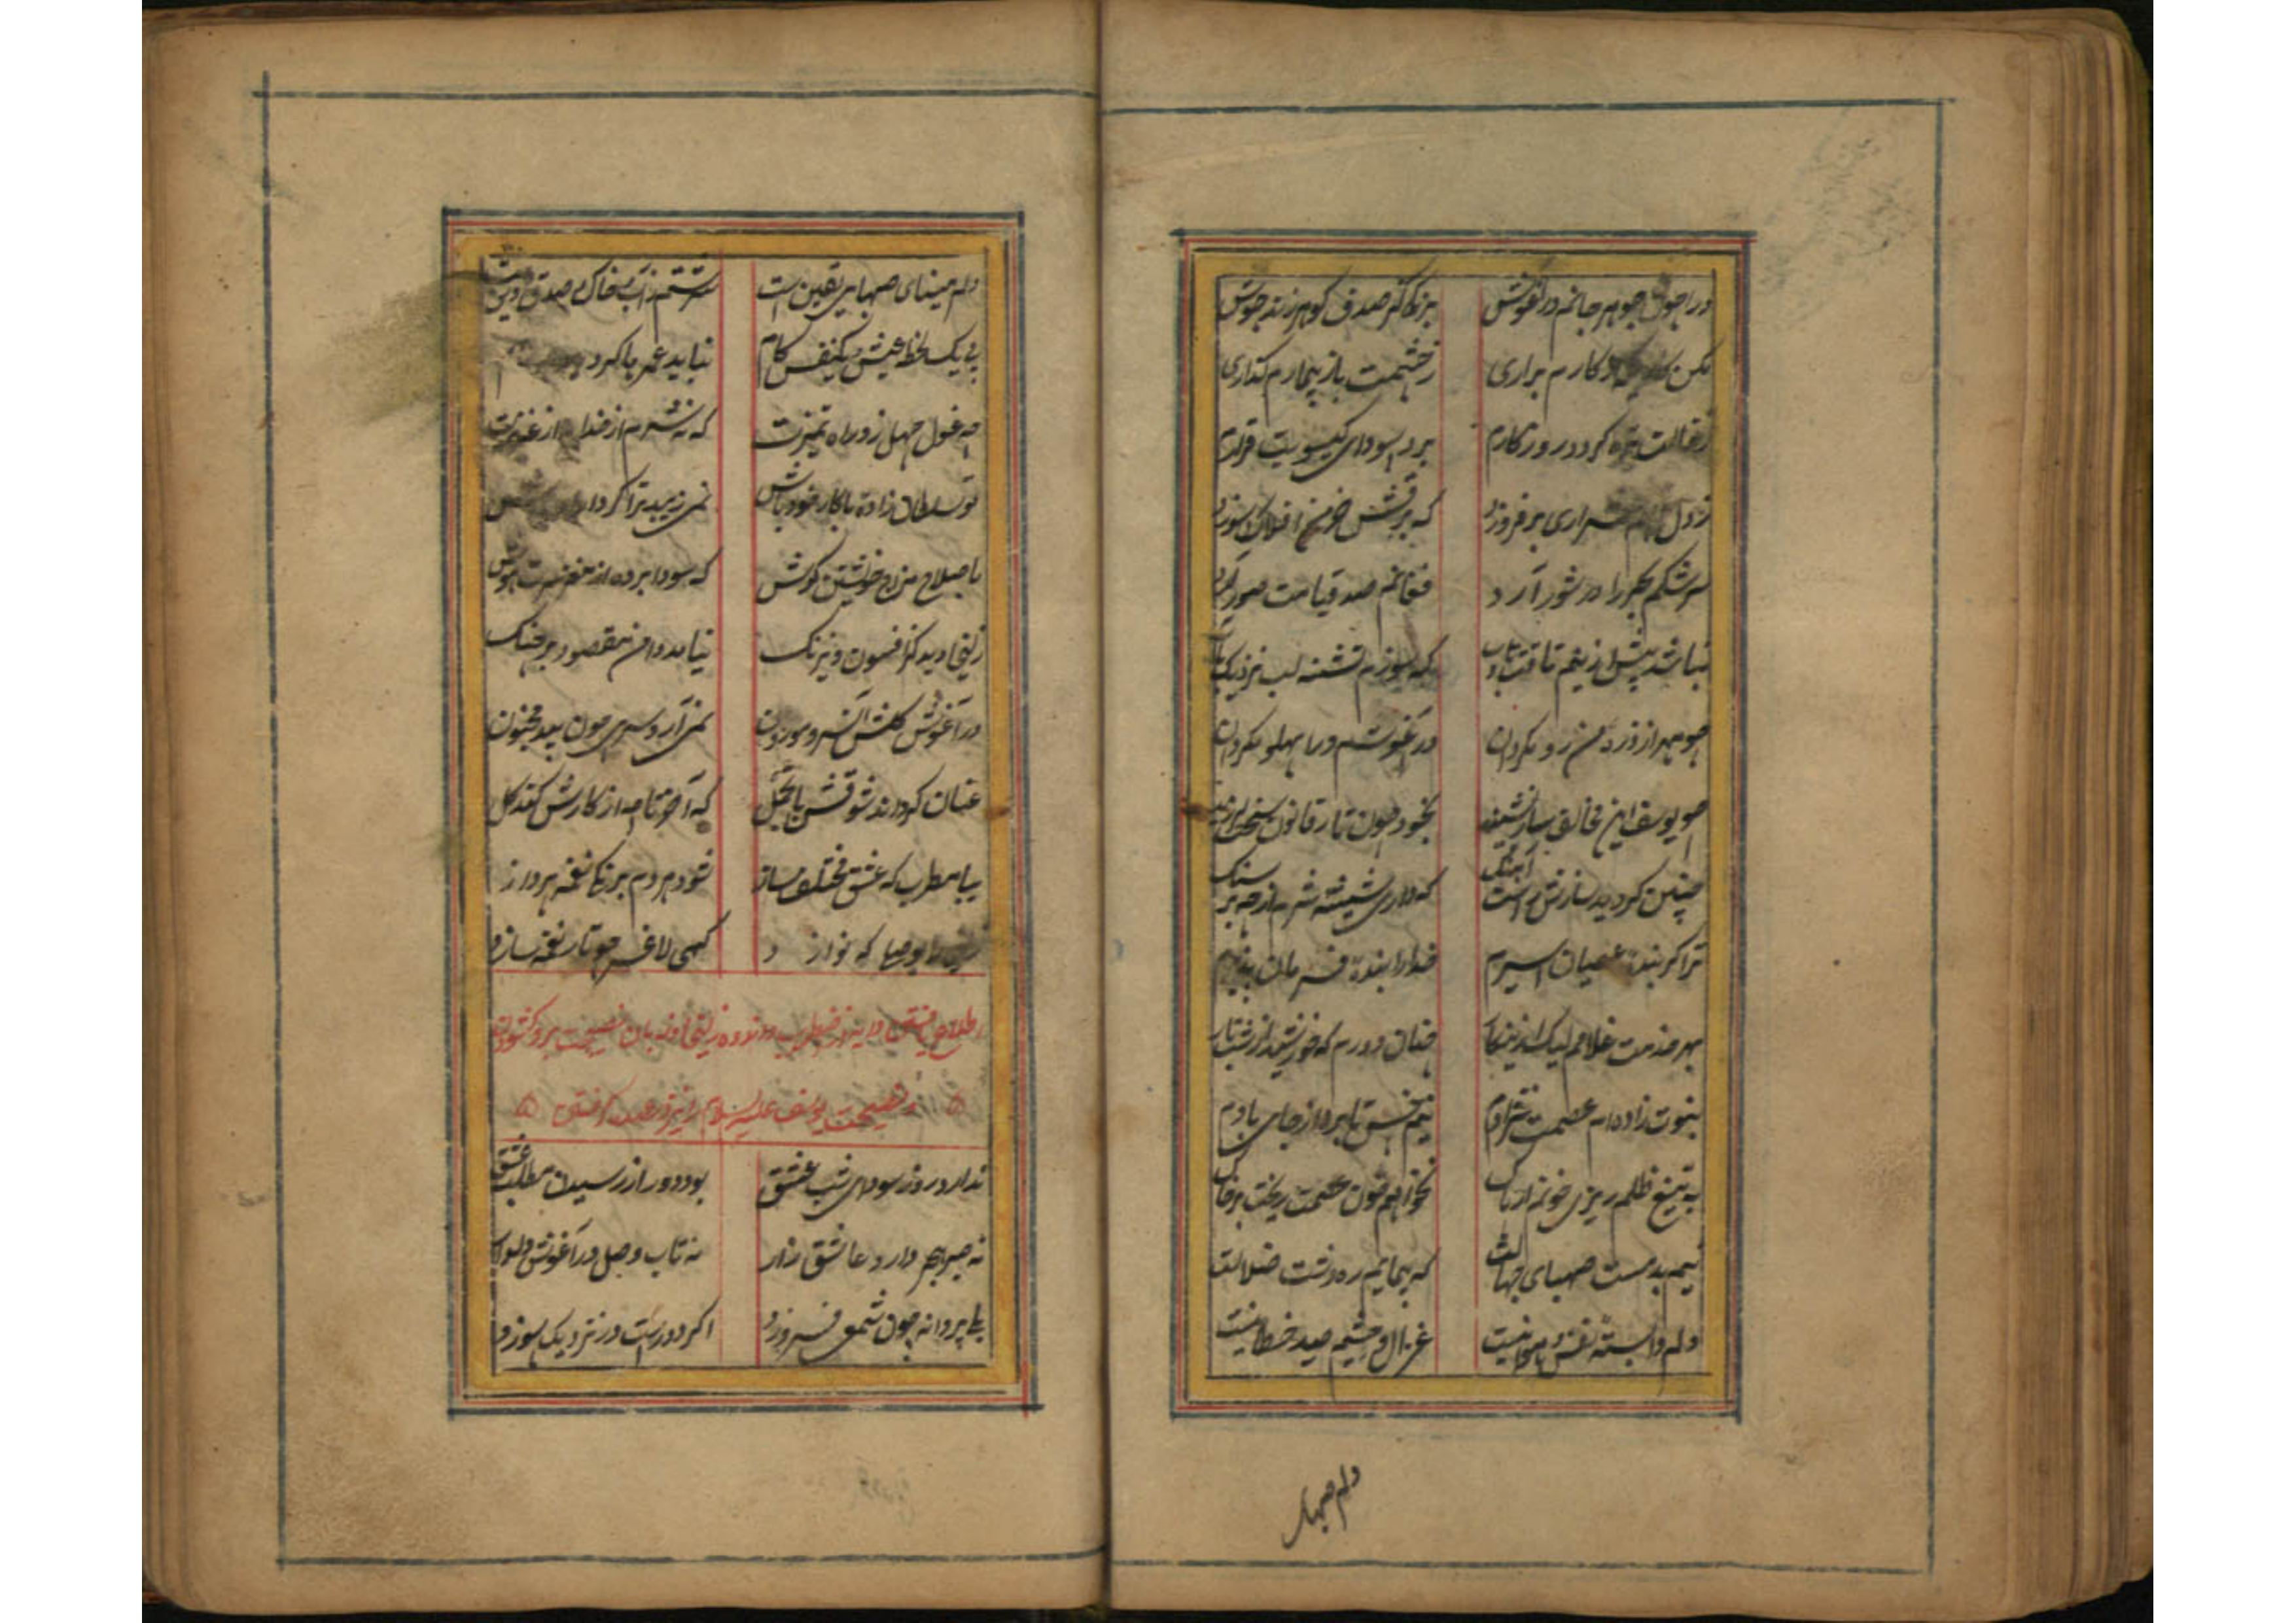 درا چون جوهر جانم در آغوش بزنگ گر صدف گوهر زند جوش
مکن کارم برآری ز خشمت باز بیمارم گذاری
ز خالت تیره گردد روزگارم برد سودای گیسویت قرارم
ز دل شراری برفروزد که برقش خرمن افلاک سوزد
سرشکم بحر را در شور آرد فغانم صد قیامت صور
نباشد پیش ازینم طاقت و تاب که سوزم تشنه لب نزدیک آب
چو مهر از ذره من رو مگردان در آغوشم درا پهلو مگردان
چو یوسف این مخالف ساز بشنید بخود چون تار قانون
چنین گردید سازش راست آهنگ که داری شیشه شرم از چه بر سنگ
ترا گر بنده عصیان اسیرم خدا را بنده فرمان پذیرم
بهر خدمت غلامم لیک ازینکار چنان دورم که خورشید از شب تار
نبوت زاده ام عصمت نژادم نیم خس تا برد از جای بادم
به تیغ ظلم ریزی خونم ار پاک نخواهم خون عصمت ریخت بر خاک
نیم بدمست صهبای جهالت که پیمایم ره دشت ضلالت
دلم وابسته نفس و هوا نیست غزال و چشیم صید خطا نیست
دلم صهبای
دلم مینای صهبای یقین است سرشتم ز آب و خاک صدق و دین است
پی یک لحظه عیش و یکنفس کام نباید عمر با کرد
چه غول جهل زد راه تمیزت که نه شرم از خدا نه از عزیزت
تو سلطان زاده با کار خود باش نمی زیبد ترا کردار
باصلاح مزاج خویشتن کوش که سودا برده از مغز سرت هوش
زلیخا دید کز افسون و نیرنگ نیامد دامن مقصود در چنگ
در آغوشش آن سرو موزون نمی آرد سری چون بید مجنون
عنان گرداند شوقش با تجمل که آخر تا چه از کارش کند گل
بیا مطرب که عشق مختلف ساز شود هر دم برنگی نغمه پرداز
را بوصل که نوازد گهی لاغر چو تار نغمه سازد
اطلاع یافتن دایه از اضطراب و اندوه زلیخا و زبان نصیحت برو گشودن
و نصیحت یوسف علیه السلام را نیز گفتن
ندارد روز سودای شب عشق بود دور از رسیدن مطلب عشق
نه صبر هجر دارد عاشق زار نه تاب وصل در آغوش دلدار
بلی پروانه چون شمعی فروزد اگر دورست ور نزدیک سوزد